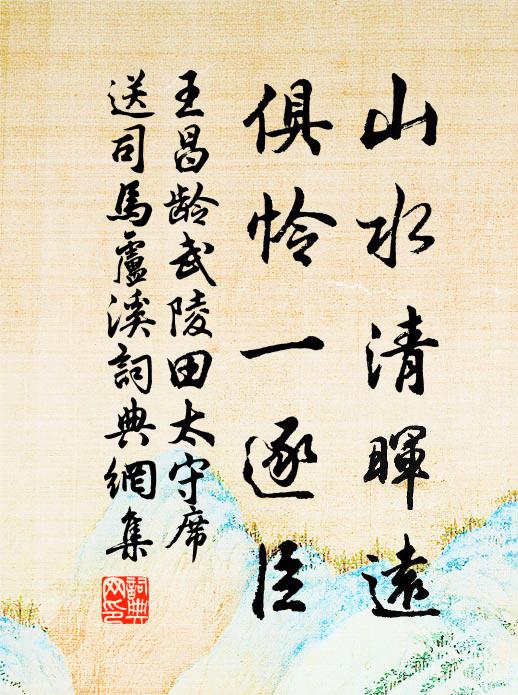 山水清暉遠
俱怜一逐臣
王昌齡武陵田太守席
送司馬盧溪詞典網集
詞典網印